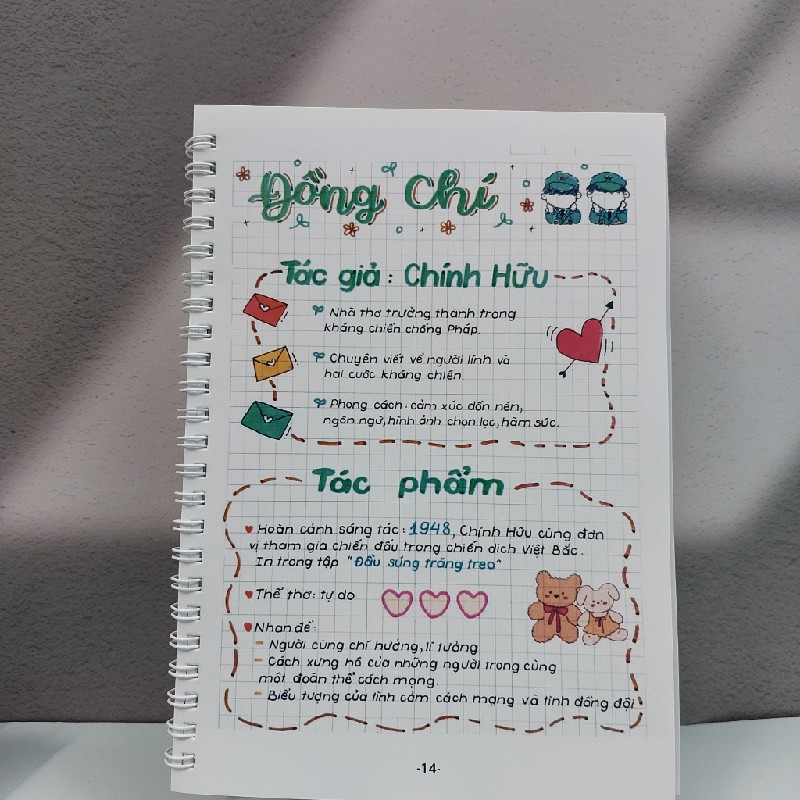 Đồng Chí
Tác giả : Chính Hữu
Nhà thơ trưởng thành trong
kháng chiến chống Pháp.
Chuyên viết về người lính và
hai cuộc kháng chiến.
Phong cách : cảm xúc dồn nén,
ngôn ngữ, hình ảnh chọn lọc, hàm súc.
Tác phẩm
Hoàn cảnh sáng tác : 1948, Chính Hữu cùng đơn
vị tham gia chiến đấu trong chiến dịch Việt Bắc.
In trong tập "Đầu súng trăng treo"
Thể thơ : tự do
Nhan đề :
- Người cùng chí hướng, lí tưởng
- Cách xưng hô của những người trong cùng
một đoàn thể cách mạng.
- Biểu tượng của tình cảm cách mạng và tình đồng đội
-14-